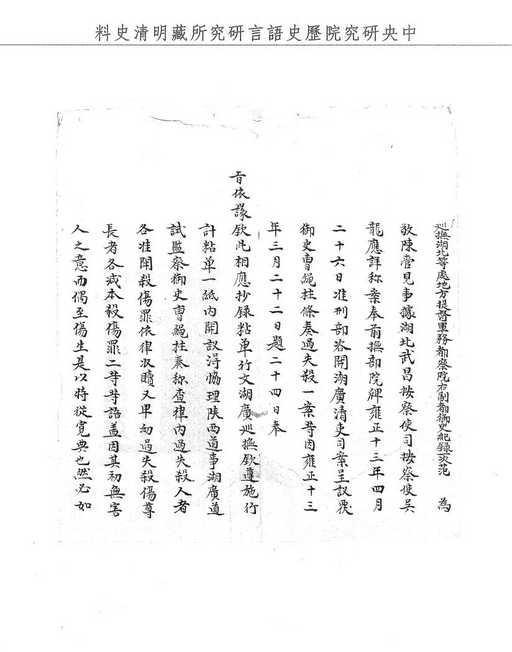 中央研究院歷史語言研究所藏明清史料
巡撫湖北等處地方提督軍務都察院右副都御史紀錄 范 為
敬陳管見事據湖北武昌按察使司按察使吳
龍應詳称案奉前撫部院牌雍正十三年四月
二十六日准刑部咨開湖廣清吏司案呈議覆
御史曹繩柱條奏過失殺一案等因雍正十三
年三月二十二日題二十四日奉
旨依議欽此相應抄錄粘单行文湖廣巡撫欽遵施行
計粘单一紙内開議得協理陝西道事湖廣道
試監察御史曹繩柱奏称查律内過失殺人者
各准鬪殺傷罪依律收贖又卑幼過失殺傷尊
長者各減本殺傷罪二等等語盖因其初無害
人之意而偶至傷生是以特從寬典也然必如